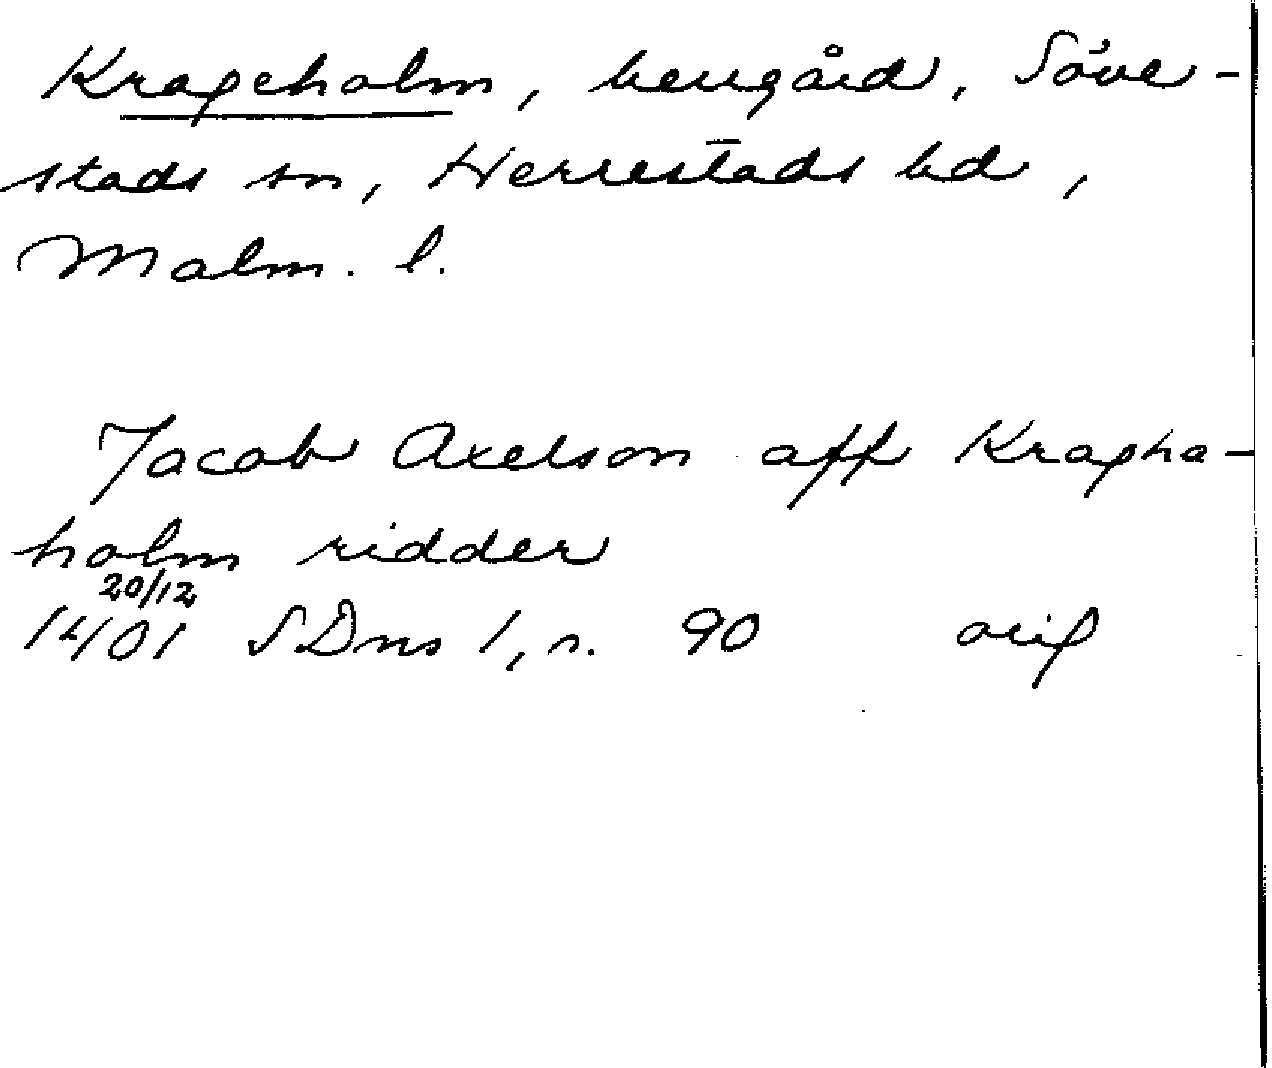 Krageholm, herrgård, Söve-
stads sn, Herrestads hd,
Malm. l.
Jacob Axelson aff Kragha-
holm ridder
20/12
1401 SDns 1, n. 90 orig